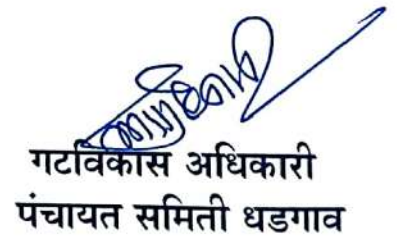 गटविकास अधिकारी
पंचायत समिती धडगाव